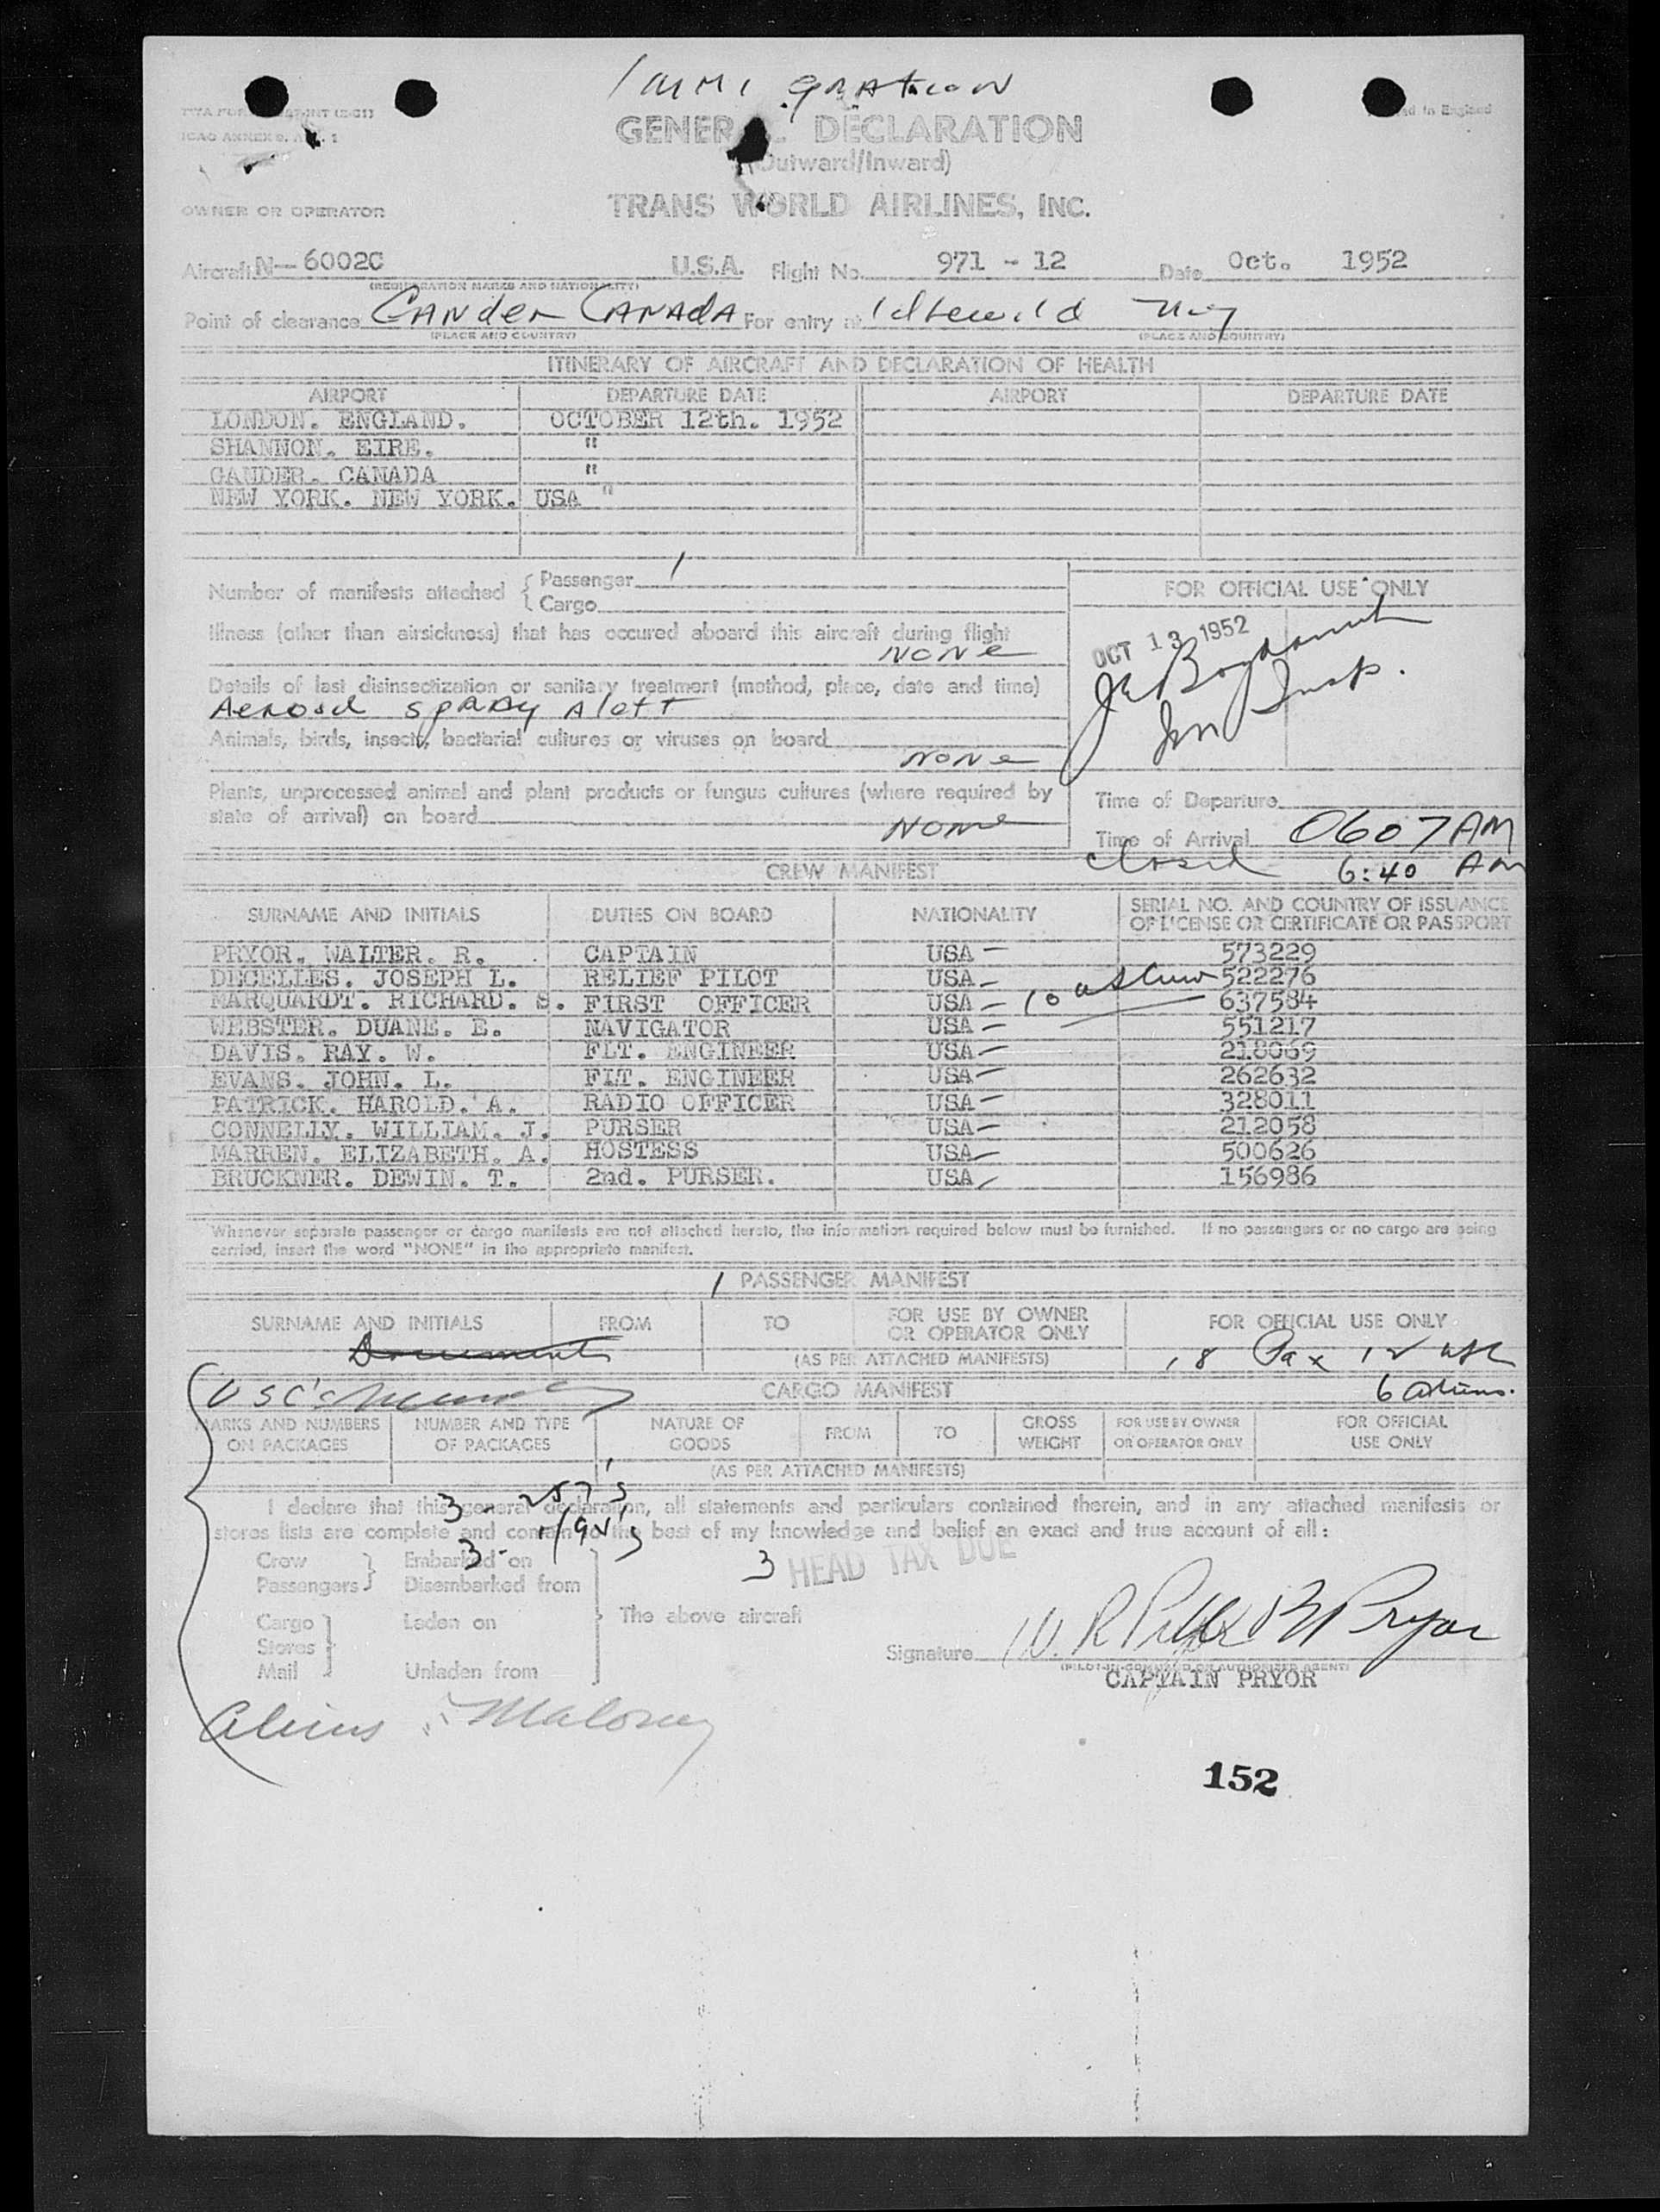 Immigration
ICAO ANNEX 9.
GENERAL DECLARATION
(Outward/Inward)
OWNER OR OPERATOR
TRANS WORLD AIRLINES, INC.
Aircraft N-6002C U.S.A. Flight No. 971 - 12 Date Oct. 1952
(REGISTRATION MARKS AND NATIONALITY)
Point of clearance Gander Canada For entry at Idlewild N.Y.
(PLACE AND COUNTRY) (PLACE AND COUNTRY)
ITINERARY OF AIRCRAFT AND DECLARATION OF HEALTH
AIRPORT DEPARTURE DATE AIRPORT DEPARTURE DATE
LONDON. ENGLAND. OCTOBER 12th. 1952
SHANNON. EIRE. "
GANDER. CANADA "
NEW YORK. NEW YORK. USA "
Number of manifests attached { Passenger 1
Cargo
FOR OFFICIAL USE ONLY
Illness (other than airsickness) that has occured aboard this aircraft during flight
None
OCT 13 1952
Details of last disinsectization or sanitary treatment (method, place, date and time)
Aerosol spray aloft
Imm Insp.
Animals, birds, insects, bacterial cultures or viruses on board
None
Plants, unprocessed animal and plant products or fungus cultures (where required by
state of arrival) on board None
Time of Departure
Time of Arrival 0607 AM
closed 6:40 AM
CREW MANIFEST
SURNAME AND INITIALS DUTIES ON BOARD NATIONALITY SERIAL NO. AND COUNTRY OF ISSUANCE
OF LICENSE OR CERTIFICATE OR PASSPORT
PRYOR. WALTER. R. CAPTAIN USA 573229
DECELLES. JOSEPH L. RELIEF PILOT USA 522276
MARQUARDT. RICHARD. S. FIRST OFFICER USA 10 637584
WEBSTER. DUANE. E. NAVIGATOR USA 551217
DAVIS. RAY. W. FLT. ENGINEER USA 218069
EVANS. JOHN. L. FLT. ENGINEER USA 262632
PATRICK. HAROLD. A. RADIO OFFICER USA 328011
CONNELLY. WILLIAM. J. PURSER USA 212058
MARREN. ELIZABETH. A. HOSTESS USA 500626
BRUCKNER. DEWIN. T. 2nd. PURSER. USA 156986
Whenever separate passenger or cargo manifests are not attached hereto, the information required below must be furnished. If no passengers or no cargo are being
carried, insert the word "NONE" in the appropriate manifest.
1 PASSENGER MANIFEST
SURNAME AND INITIALS FROM TO FOR USE BY OWNER
OR OPERATOR ONLY FOR OFFICIAL USE ONLY
(AS PER ATTACHED MANIFESTS) 18 Pax 12 usc
USC's CARGO MANIFEST 6 aliens.
MARKS AND NUMBERS
ON PACKAGES NUMBER AND TYPE
OF PACKAGES NATURE OF
GOODS FROM TO GROSS
WEIGHT FOR USE BY OWNER
OR OPERATOR ONLY FOR OFFICIAL
USE ONLY
(AS PER ATTACHED MANIFESTS)
3 - 257's
I declare that this general declaration, all statements and particulars contained therein, and in any attached manifests or
stores lists are complete and contain to the best of my knowledge and belief an exact and true account of all:
3 -
Crew
Passengers } Embarked on
Disembarked from
3 HEAD TAX DUE
Cargo
Stores
Mail } Laden on
Unladen from
The above aircraft
Signature W. R. Pryor
(PILOT-IN-COMMAND OR AUTHORIZED AGENT)
CAPTAIN PRYOR
Aliens : Maloney
152